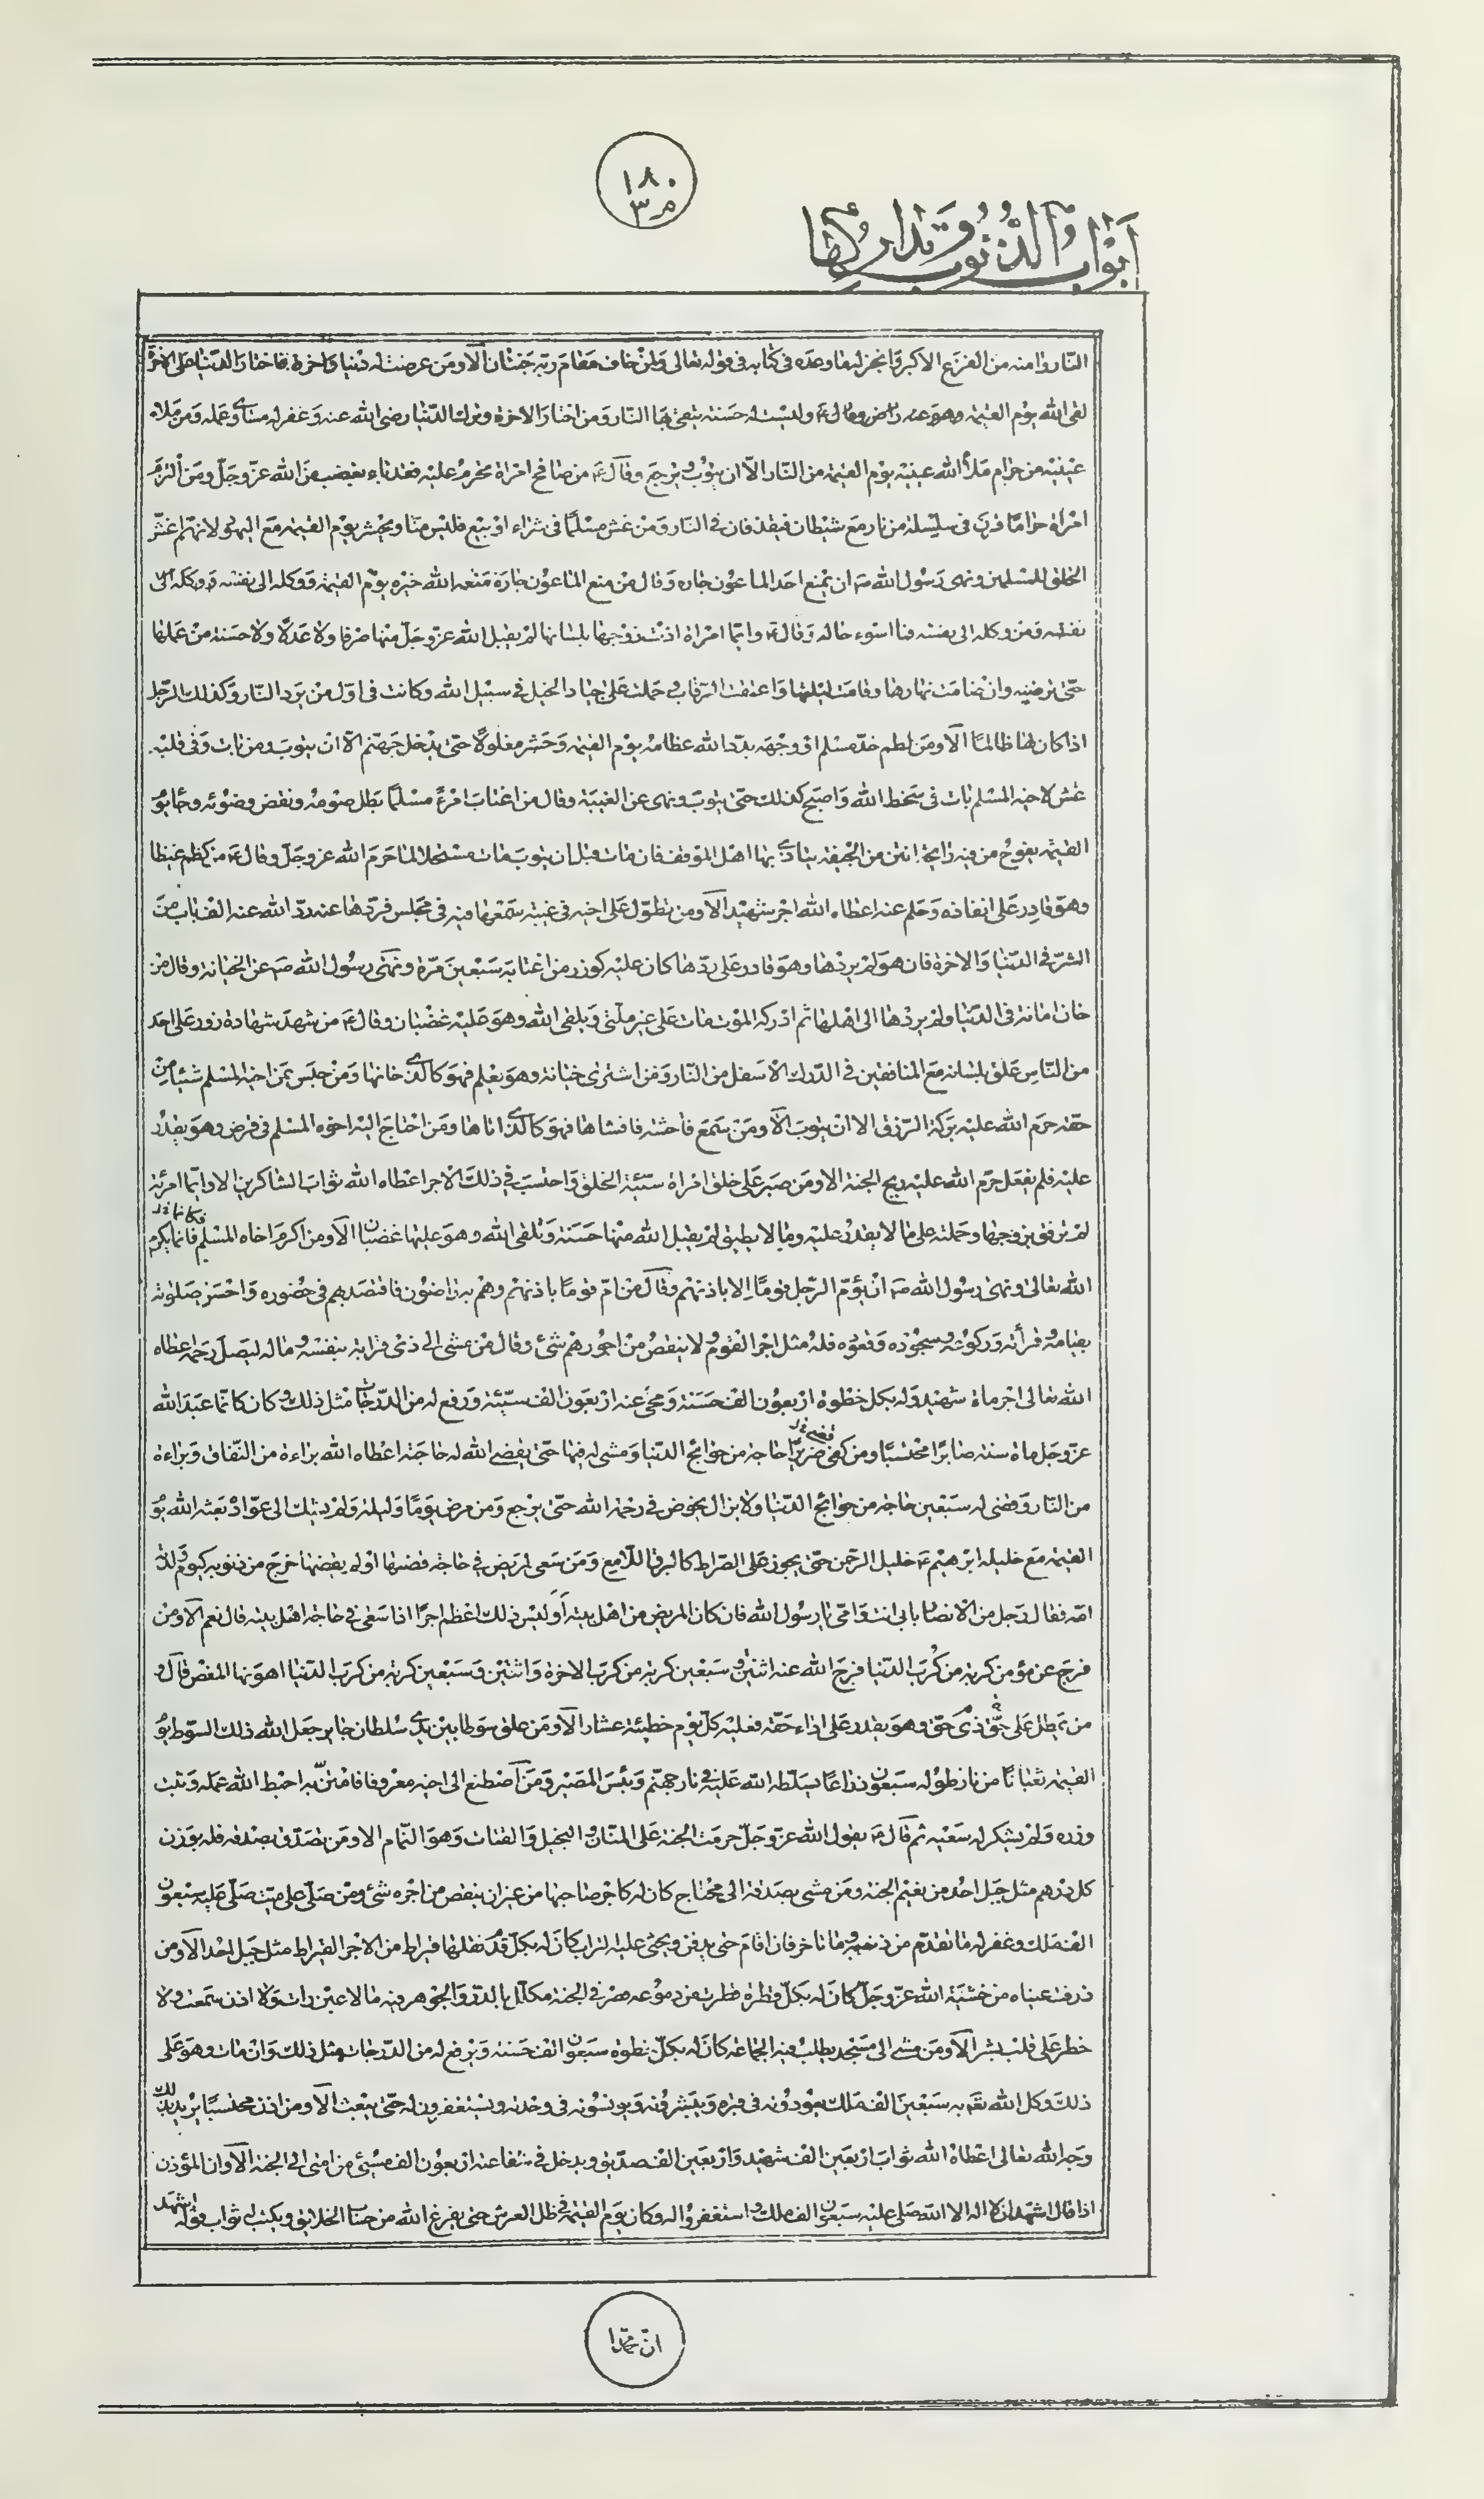 ١٨٠
م ٣
أبواب الذنوب وتداركها
النار وامنه من الفزع الاكبر وانجز له ما وعده فى كتابه فى قوله تعالى ولمن خاف مقام ربه جنتان ألا ومن عرضت له دنيا واخرة فاختار الدنيا على الاخرة
لقى الله يوم القيمة وليست له حسنة يتقى بها النار ومن اختار الاخرة وترك الدنيا رضى الله عنه وغفر له مساوى عمله ومن ملاء
عينيه من حرام ملأ الله عينيه يوم القيمة من النار الا ان يتوب ويرجع وقال ع من صافح امراة تحرم عليه فقد باء بغضب من الله عز وجل ومن التزم
امراة حراما قرن فى سلسلة من نار مع شيطان فيقذفان فى النار ومن غش مسلما فى شراء او بيع فليس منا ويحشر يوم القيمة مع اليهود لانهم اغش
الخلق للمسلمين ونهى رسول الله ص ان يمنع احد الماعون جاره وقال من منع الماعون جاره منعه الله خيره يوم القيمة ووكله الى نفسه ومن وكله الى
نفسه ومن وكله الى نفسه فما اسوء حاله وقال ع وايما امراة اذت زوجها بلسانها لم يقبل الله عز وجل منها صرفا ولا عدلا ولا حسنة من عملها
حتى ترضيه وان صامت نهارها وقامت ليلها واعتقت الرقاب وحملت على جياد الخيل فى سبيل الله وكانت فى اول من يرد النار وكذلك الرجل
اذا كان لها ظالما ألا ومن لطم خد مسلم او وجهه بدد الله عظامه يوم القيمة وحشر مغلولا حتى يدخل جهنم الا ان يتوب ومن بات وفى قلبه
غش لاخيه المسلم بات فى سخط الله واصبح كذلك حتى يتوب ونهى عن الغيبة وقال من اغتاب امرءً مسلما بطل صومه ونقض وضوئه وجاء يو
القيمة يفوح من فيه رايحة انتن من الجيفة يتاذى بها اهل الموقف فان مات قبل ان يتوب مات مستحلا لما حرم الله عز وجل وقال ع من كظم غيظا
وهو قادر على انفاذه وحلم عنه اعطاه الله اجر شهيد ألا ومن تطول على اخيه فى غيبة سمعها فيه فى مجلس فردها عنه رد الله عنه الف باب من
الشر فى الدنيا والاخرة فان هو لم يردها وهو قادر على ردها كان عليه كوزر من اغتابه سبعين مرة ونهى رسول الله ص عن الخيانة وقال من
خان امانة فى الدنيا ولم يردها الى اهلها ثم ادركه الموت مات على غير ملتى ويلقى الله وهو عليه غضبان وقال ع من شهد شهادة زور على احد
من الناس علق بلسانه مع المنافقين فى الدرك الاسفل من النار ومن اشترى خيانة وهو يعلم فهو كالذى خانها ومن حبس عن اخيه المسلم شيئا من
حقه حرم الله عليه بركة الرزق الا ان يتوب ألا ومن سمع فاحشة فافشاها فهو كالذى اتاها ومن احتاج اليه اخوه المسلم فى قرض وهو يقدر
عليه فلم يفعل حرم الله عليه ريح الجنة الا ومن صبر على خلق امراة سيئة الخلق واحتسب فى ذلك الاجر اعطاه الله ثواب الشاكرين الا وايما امرئة
لم ترفق بزوجها وحملته على ما لا يقدر عليه وما لا يطيق لم يقبل الله منها حسنة وتلقى الله وهو عليها غضبان ألا ومن اكرم اخاه المسلم فانما يكرم
الله تعالى ونهى رسول الله ص ان يؤم الرجل قوما الا باذنهم وقال من ام قوما باذنهم وهم به راضون فاقتصد بهم فى حضوره واحسن صلوته
بقيامه وقرأته وركوعه وسجوده وقعوده فله مثل اجر القوم ولا ينقص من اجورهم شئ وقال من مشى الى ذى قرابة بنفسه وماله ليصل رحمه اعطاه
الله تعالى اجر ماة شهيد وله بكل خطوة اربعون الف حسنة ومحى عنه اربعون الف سيئة ورفع له من الدرجات مثل ذلك وكان كانما عبد الله
عز وجل ماة سنة صابرا محتسبا ومن كفى ضريرا حاجة من حوائج الدنيا ومشى له فيها حتى يقضى الله له حاجته اعطاه الله براءة من النفاق وبراءة
من النار وقضى له سبعين حاجة من حوائج الدنيا ولا يزال يخوض فى رحمة الله حتى يرجع ومن مرض يوما وليلة ولم يشك الى عواده بعثه الله يو
القيمة مع خليله ابرهيم ع خليل الرحمن حتى يجوز على الصراط كالبرق اللامع ومن سعى لمريض فى حاجة قضيها او لم يقضها خرج من ذنوبه كيوم ولدته
امه فقال رجل من الانصار بابى انت وامى يا رسول الله فان كان المريض من اهل بيته أوليس ذلك اعظم اجرا اذا سعى فى حاجة اهل بيته قال نعم الا ومن
فرج عن مؤمن كربة من كرب الدنيا فرج الله عنه اثنتين وسبعين كربة من كرب الاخرة واثنتين وسبعين كربة من كرب الدنيا اهونها المغص قال و
من يمطل على ذى حق حقه وهو يقدر على اداء حقه فعليه كل يوم خطيئة عشار ألا ومن علق سوطا بين يدى سلطان جاير جعل الله ذلك السوط يو
القيمة ثعبانا من نار طوله سبعون ذراعا يسلطه الله عليه فى نار جهنم وبئس المصير ومن اصطنع الى اخيه معروفا فامتن به احبط الله عمله وثبت
وزره ولم يشكر له سعيه ثم قال ع يقول الله عز وجل حرمت الجنة على المنان والبخيل والقتات وهو النمام الا ومن تصدق بصدقة فله بوزن
كل درهم مثل جبل احد من نعيم الجنة ومن مشى بصدقة الى محتاج كان له كاجر صاحبها من غير ان ينقص من اجره شئ ومن صلى على ميت صلى عليه سبعون
الف ملك وغفر له ما تقدم من ذنبه وما تاخر فان اقام حتى يدفن ويحثى عليه التراب كان له بكل قدم نقلها قيراط من الاجر القيراط مثل جبل احد ألا ومن
ذرفت عيناه من خشية الله عز وجل كان له بكل قطرة قطرت من دموعه قصر فى الجنة مكلل بالدر والجوهر فيه ما لا عين رات ولا اذن سمعت ولا
خطر على قلب بشر ألا ومن مشى الى مسجد يطلب فيه الجماعة كان له بكل خطوة سبعون الف حسنة ويرفع له من الدرجات مثل ذلك وان مات وهو على
ذلك وكل الله تع به سبعين الف ملك يعودونه فى قبره ويبشرونه ويونسونه فى وحدته ويستغفرون له حتى يبعث ألا ومن اذن محتسبا يريد بذلك
وجه الله تعالى اعطاه الله ثواب اربعين الف شهيد واربعين الف صديق ويدخل فى شفاعته اربعون الف مسئ من امتى الى الجنة ألا وان المؤذن
اذا قال اشهد ان لا اله الا الله صلى عليه سبعون الف ملك واستغفروا له وكان يوم القيمة فى ظل العرش حتى يفرغ الله من حساب الخلايق ويكتب له ثواب قوله اشهد
ان محمدا